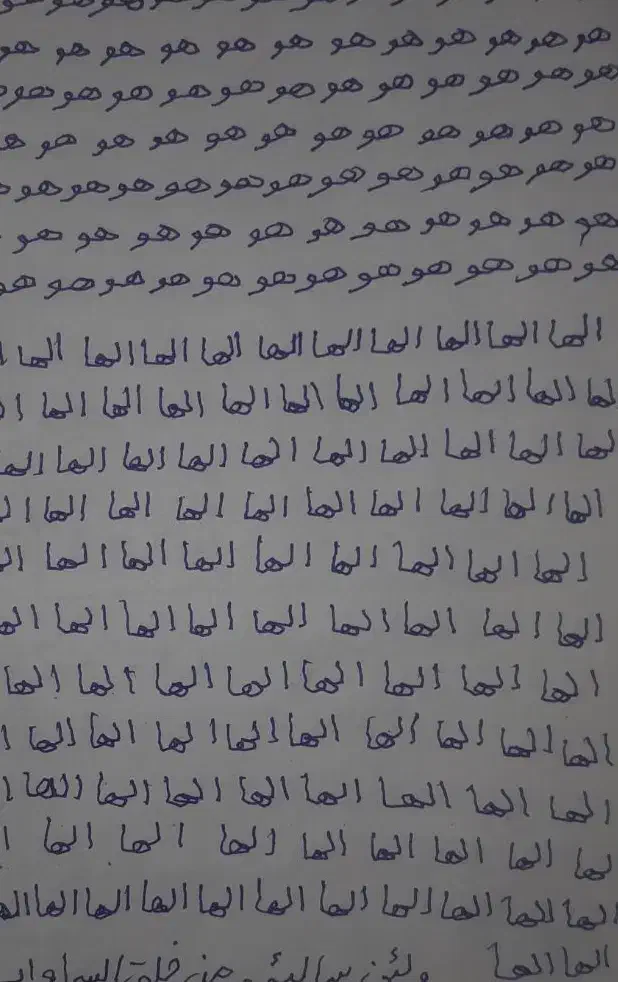 هو هو هو هو هو هو هو هو هو هو هو هو
هو هو هو هو هو هو هو هو هو هو هو هو
هو هو هو هو هو هو هو هو هو هو هو ه
هو هو هو هو هو هو هو هو هو هو هو هو
هو هو هو هو هو هو هو هو هو هو هو
هو هو هو هو هو هو هو هو هو هو هو هو
الها الها الها الها الها الها الها الها الها الها ا
لها الها الها الها الها الها الها الها الها الها ال
لها الها الها الها الها الها الها الها الها الها
الها الها الها الها الها الها الها الها الها ال
الها الها الها الها الها الها الها الها ال
الها الها الها الها الها الها الها الها الها
الها الها الها الها الها الها الها الها
الها الها الها الها الها الها الها الها الها ا
الها الها الها الها الها الها الها الها ا
لها الها الها الها الها الها الها الها ا
الها الها الها الها الها الها الها الها الها الها الها
الها الها من خلق